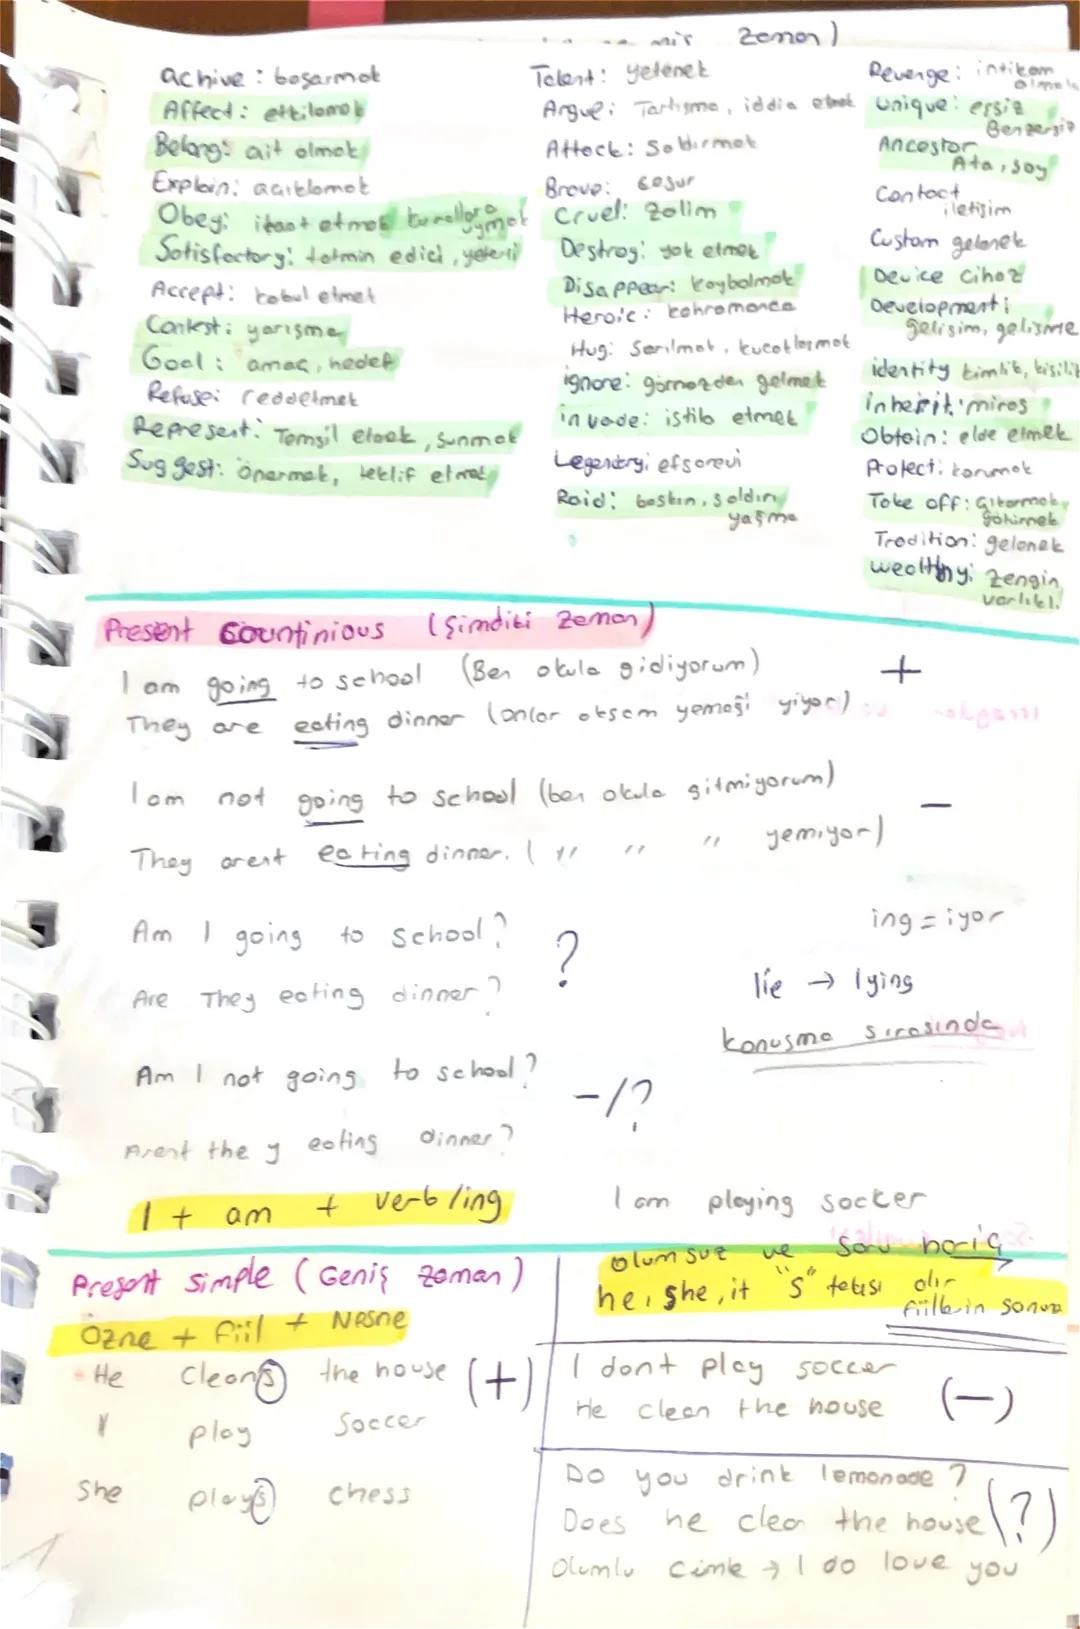 mis zaman)
achive : başarmak
Affect : etkilemek
Belong: ait olmak
Explain: açıklamak
Obey: itaat etmek kurallara uymak
Satisfactory: tatmin edici, yeterli
Accept: kabul etmek
Contest: yarışma
Goal : amaç, hedef
Refuse: reddetmek
Represent: Temsil etmek, sunmak
Suggest: önermek, teklif etmek
Talent: yetenek
Argue: Tartışma, iddia etmek
Attack: Saldırmak
Brave: cesur
Cruel: Zalim
Destroy: yok etmek
Disappear: kaybolmak
Heroic: kahramanca
Hug: Sarılmak, kucaklaşmak
ignore: görmezden gelmek
invade: istila etmek
Legendary: efsanevi
Raid: baskın, saldırı,
yağma
Revenge: intikam
almak
unique: eşsiz
Benzersiz
Ancestor
Ata, soy
Contact
iletişim
Custom gelenek
Device Cihaz
Development:
gelişim, gelişme
identity kimlik, kişilik
inherit: miras
Obtain: elde etmek
Protect: korumak
Take off: Çıkarmak,
Tradition: gelenek
wealthy: zengin
varlıklı
Present Countinious (Şimdiki Zaman)
I am going to school (Ben okula gidiyorum) +
They are eating dinner (onlar akşam yemeği yiyor)
I am not going to school (ben okula gitmiyorum) —
They arent eating dinner. ( " " " yemiyor)
Am I going to school? ?
ing = iyor
Are They eating dinner?
lie → lying
konuşma sırasında
Am I not going to school? -/?
Arent they eating dinner?
I + am + verb/ing
I am playing soccer
Present simple (Geniş zaman)
Özne + fiil + Nesne
He Cleans the house (+)
I play Soccer
She plays chess
olumsuz ve soru hariç
he, she, it "S" takısı alır
fiillerin sonuna
I dont play soccer
He clean the house (—)
Do you drink lemonade ?
Does he clean the house (?)
Olumlu cümle → I do love you